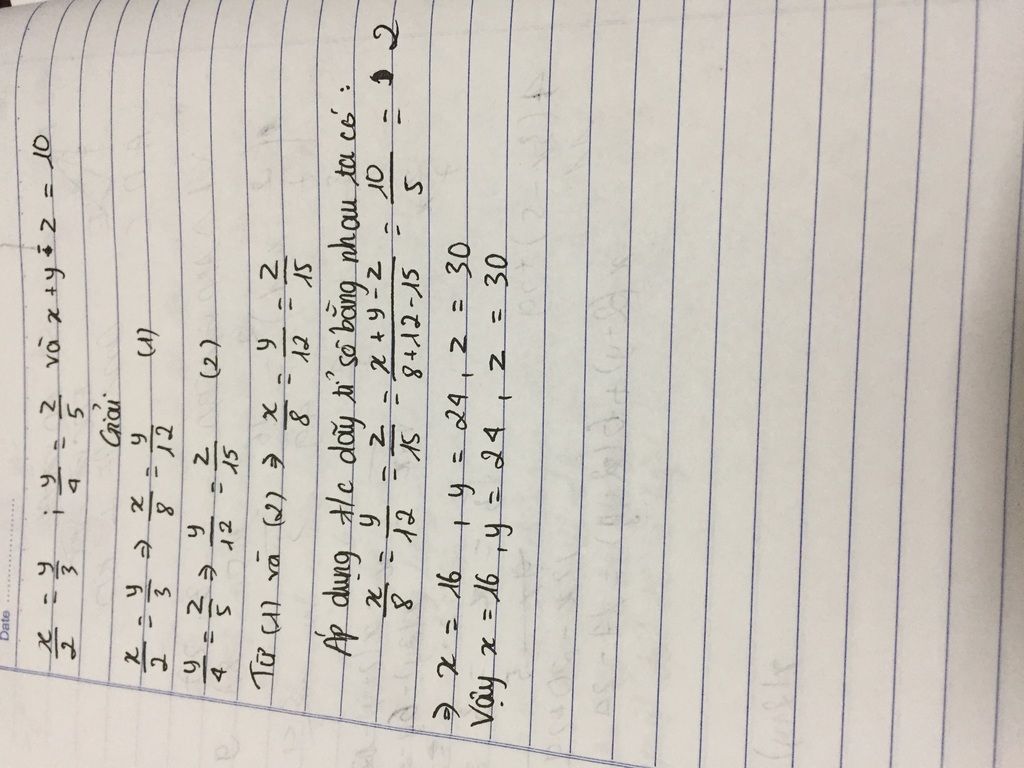 Date
x/2 = y/3 ; y/4 = z/5 và x + y - z = 10
Giải
x/2 = y/3 ⇒ x/8 = y/12 (1)
y/4 = z/5 ⇒ y/12 = z/15 (2)
Từ (1) và (2) ⇒ x/8 = y/12 = z/15
Áp dụng t/c dãy tỉ số bằng nhau ta có :
x/8 = y/12 = z/15 = (x + y - z)/(8 + 12 - 15) = 10/5 = 2
⇒ x = 16 , y = 24 , z = 30
Vậy x = 16 , y = 24 , z = 30